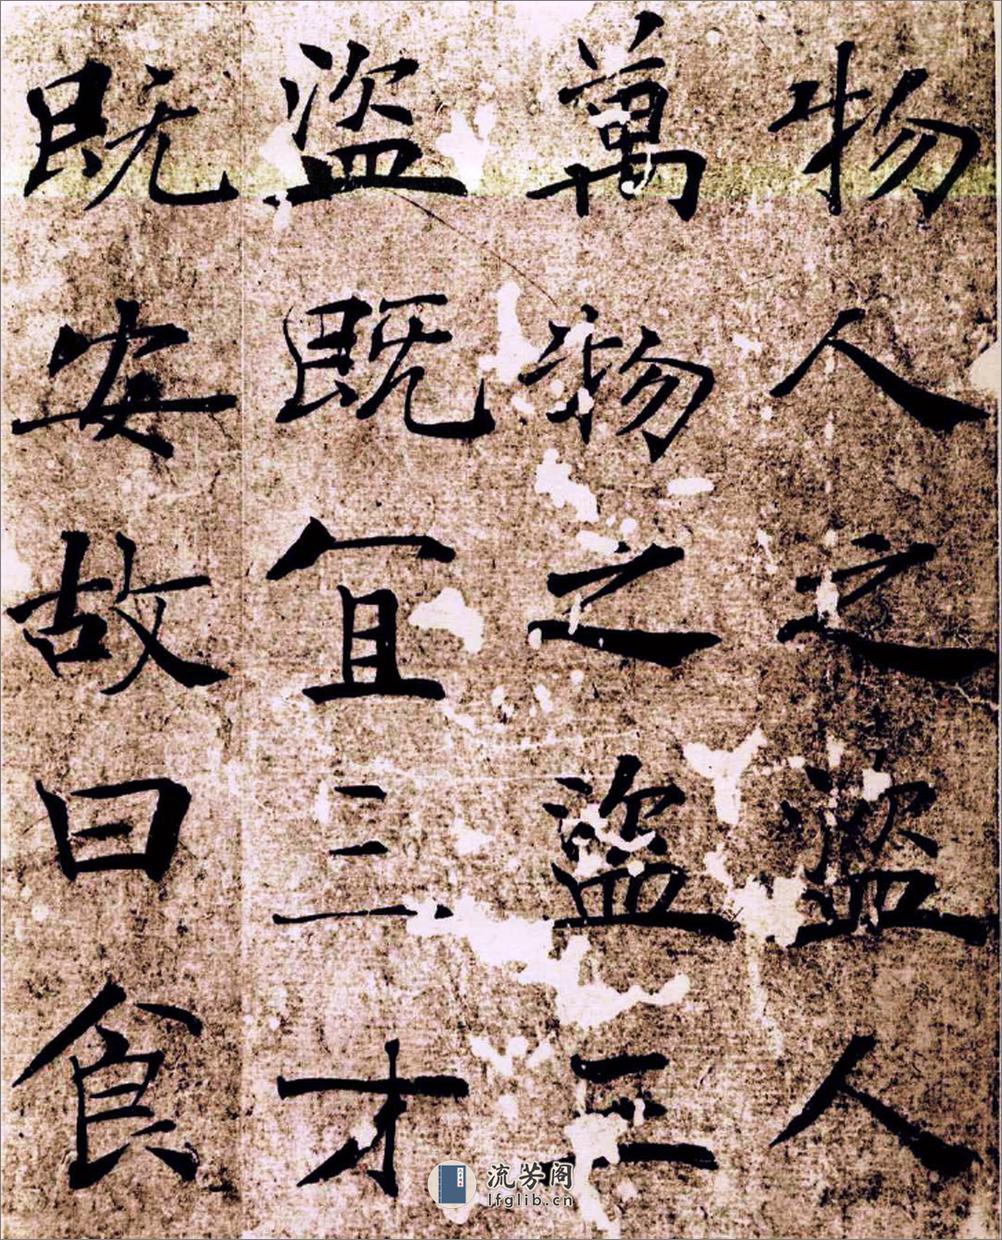 物人之盗人
萬物之盗三
盗既宜三才
既安故曰食
流芳阁
lfglib.cn